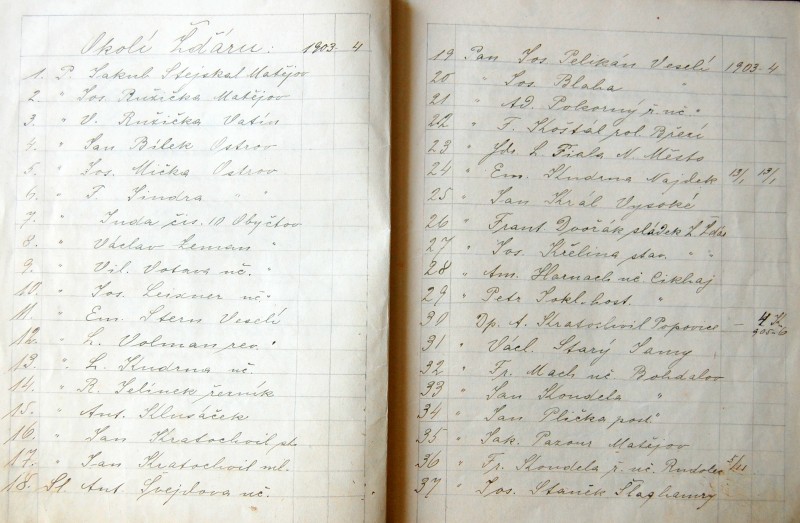 Okolí Žďáru: 1903-4
1. P. Jakub Stejskal Matějov
2. " Jos. Růžička Matějov
3. " V. Růžička Vatín
4. " Jan Bílek Ostrov
5. " Jos. Mička Ostrov
6. " F. Jindra " "
7. " Inda čís. 10 Obyčtov
8. " Václav Zeman "
9. " Vil. Votava uč. "
10. " Jos. Leixner uč. "
11. " Em. Stern Veselí
12. " L. Volman rev. "
13. " L. Kudrna uč.
14. " R. Jelínek řezník
15. " Ant. Klusáček
16. " Jan Kratochvíl st.
17. " Jan Kratochvíl ml.
18. Sl. Ant. Švejdova uč.
19 Pan Jos Pelikán Veselí 1903-4
20 " Jos. Blaha "
21 " Ad. Pokorný ř. uč. "
22 " F. Košťál rol. Březí
23 " L. Fiala N. Město
24 " Em. Kudrna Najdek 13/1 13/1
25 " Jan Král Vysoké
26 " Frant Dvořák sládek Z. Žďár
27 " Jos. Křelina stav. " "
28 " Am. Harnach uč Cikháj
29 " Petr Sokl. host. "
30 Dp. A. Kratochvíl Popovice — 4 K
31 " Václ. Starý Jamy
32 " Fr. Mach uč Bohdalov
33 " Jan Kondela "
34 " Jan Plička pošt "
35 " Jak. Pazour Matějov
36 " Fr. Kondela ř. uč. Rudolec
37 " Jos. Staněk Šlaghamry